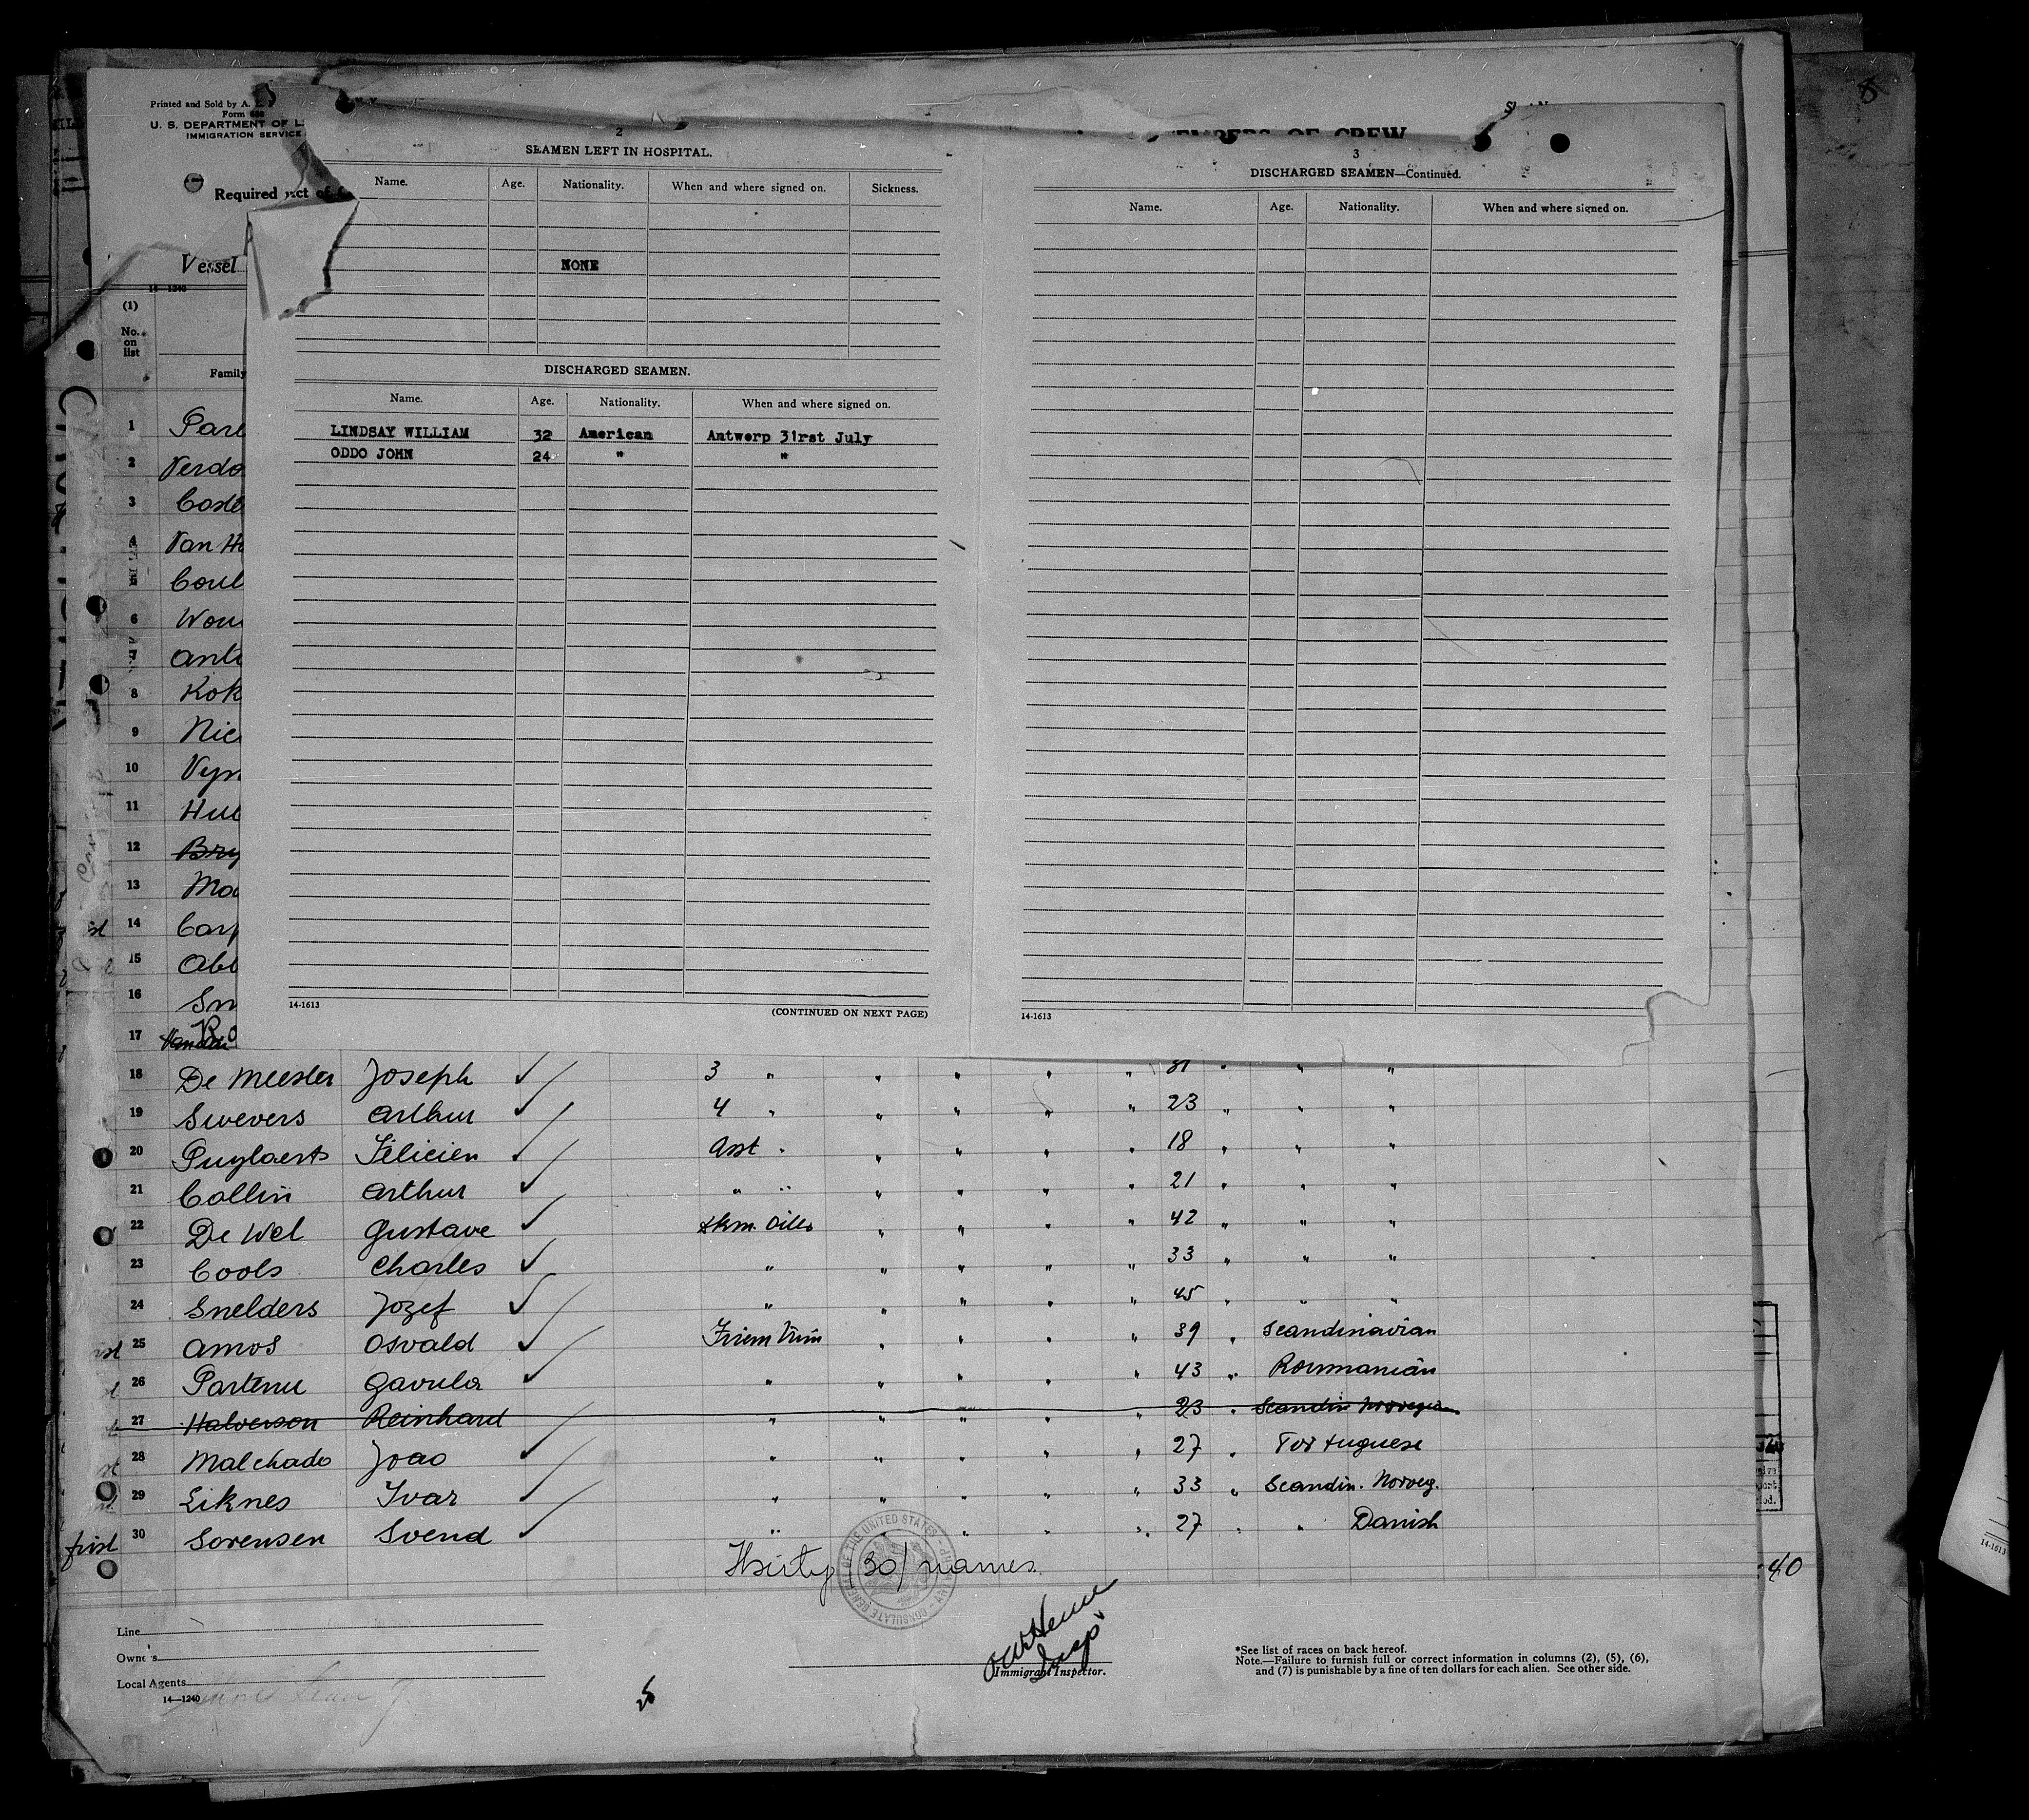 Printed and Sold by A.
Form
U. S. DEPARTMENT OF
IMMIGRATION SERVICE
OF CREW
Required
Vessel
14—1240
(1)
No. on list
Family
2
SEAMEN LEFT IN HOSPITAL.
Name. Age. Nationality. When and where signed on. Sickness.
NONE
DISCHARGED SEAMEN.
Name. Age. Nationality. When and where signed on.
LINDSAY WILLIAM 32 American Antwerp 31rst July
ODDO JOHN 24 " "
14-1613
(CONTINUED ON NEXT PAGE)
3
DISCHARGED SEAMEN—Continued.
Name. Age. Nationality. When and where signed on.
14-1613
1 Pare
2 Verdo
3 Coste
4 Van H
5 Coul
6 Wou
7 Anto
8 Kok
9 Nic
10 Vyn
11 Hul
12 Bry
13 Ma
14 Carp
15 Abl
16 Sm
17
18 De Meester Joseph 3 " " " " " 31 " " "
19 Swevers Arthur 4 " " " " " 23 " " "
20 Puylaerts Félicien Asst " " " " " 18 " " "
21 Collin Arthur " " " " " " 21 " " "
22 De Wel Gustave Stkm. Oiler " " " " 42 " " "
23 Cools Charles " " " " " 33 " " "
24 Snelders Jozef " " " " " 45 " " "
25 Amos Osvald " " " " 39 " Scandinavian
26 Partenu Gavula " " " " " 43 " Roumanian
27 Halverson Reinhard " " " " " 23 " Scandin Norvegian
28 Malchado Joao " " " " " 27 " Portuguese
29 Liknes Ivar " " " " " 33 " Scandin. Norveg.
first 30 Sorensen Svend " " " " " 27 " " Danish
Thirty /30/ names.
40
Line
Owners
Local Agents
14—1240
Immigrant Inspector.
*See list of races on back hereof.
Note.—Failure to furnish full or correct information in columns (2), (5), (6),
and (7) is punishable by a fine of ten dollars for each alien. See other side.
14-1613